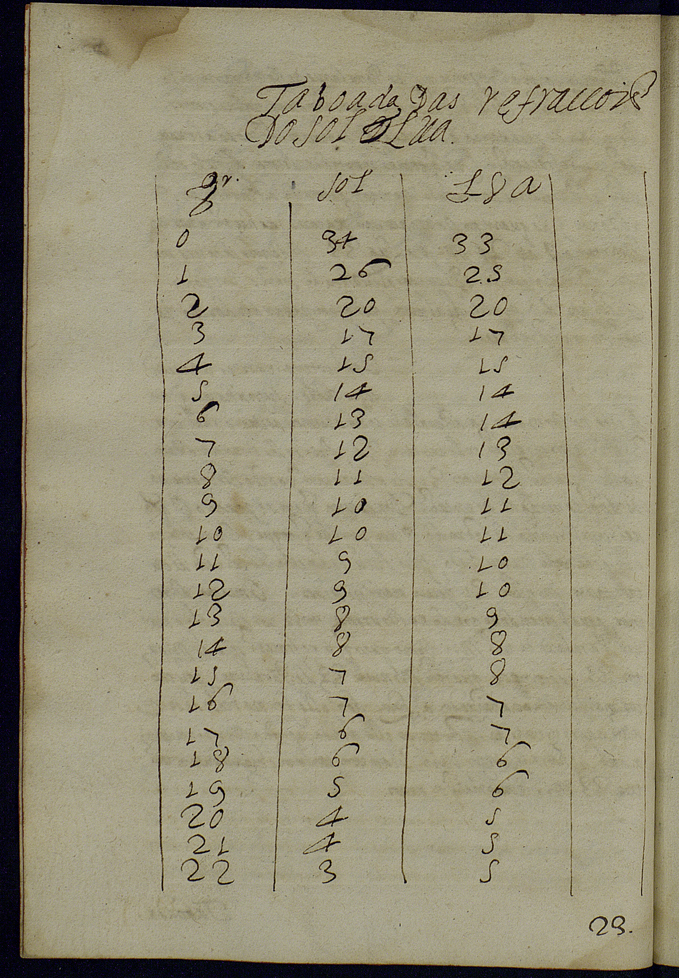 Taboada Das refraccois
Do sol e Lua.
gr. sol Lua
0 34 33
1 26 25
2 20 20
3 17 17
4 15 15
5 14 14
6 13 14
7 12 13
8 11 12
9 10 11
10 10 11
11 9 10
12 9 10
13 8 9
14 8 8
15 7 8
16 7 7
17 6 7
18 6 6
19 5 6
20 4 5
21 4 5
22 3 5
23.